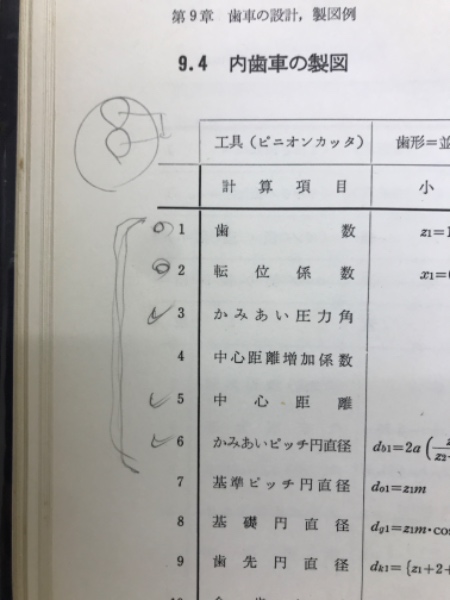 第9章 歯車の設計，製図例
9.4 内歯車の製図
工具（ピニオンカッタ） 歯形＝並
計算項目 小
1 歯数 z1=1
2 転位係数 x1=
3 かみあい圧力角
4 中心距離増加係数
5 中心距離
6 かみあいピッチ円直径 db1=2a(
7 基準ピッチ円直径 do1=z1m
8 基礎円直径 dg1=z1m·cos
9 歯先円直径 dk1={z1+2+